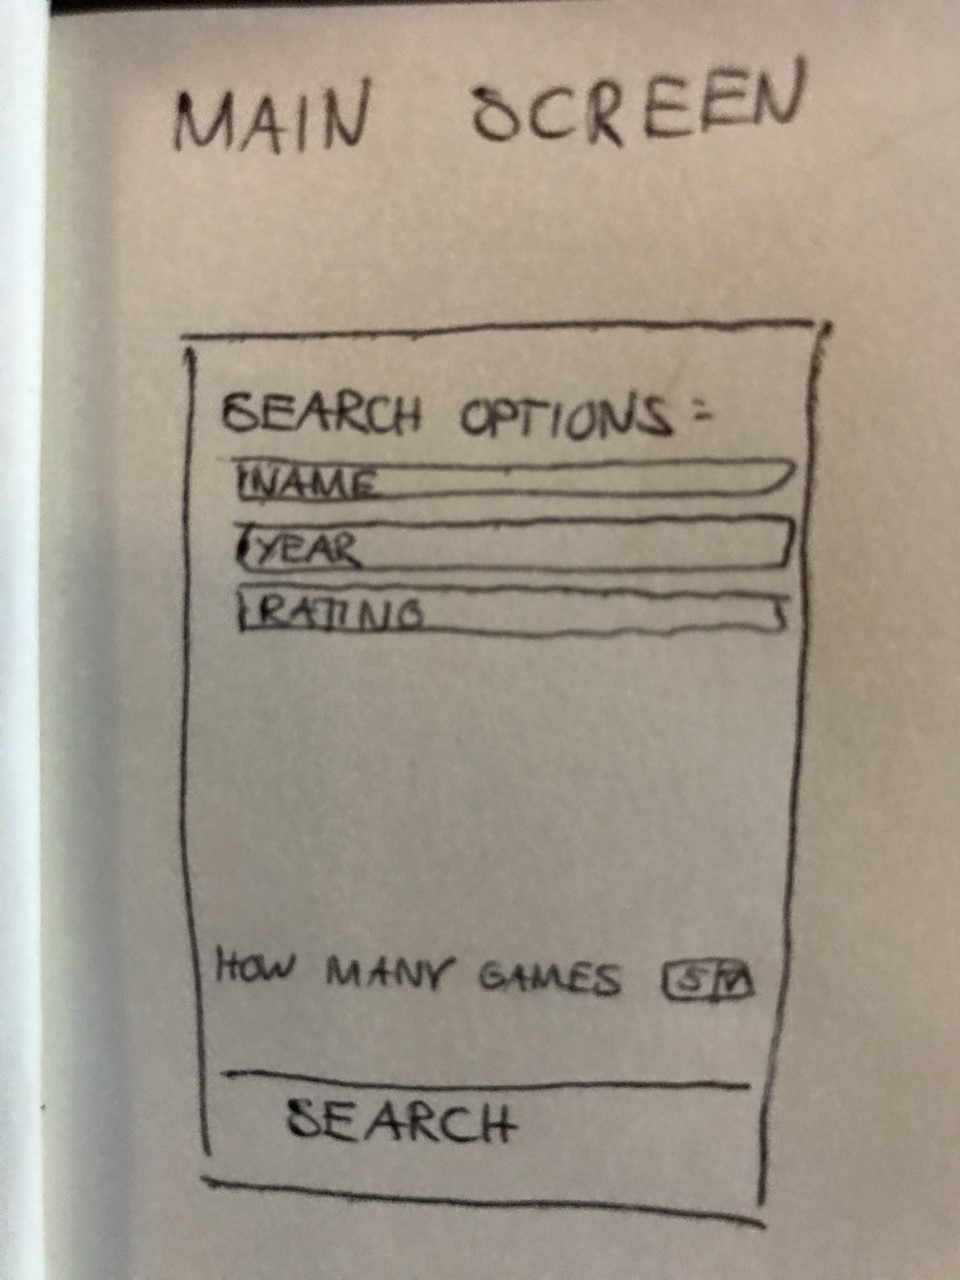 MAIN SCREEN
SEARCH OPTIONS:
NAME
YEAR
RATING
HOW MANY GAMES 5
SEARCH